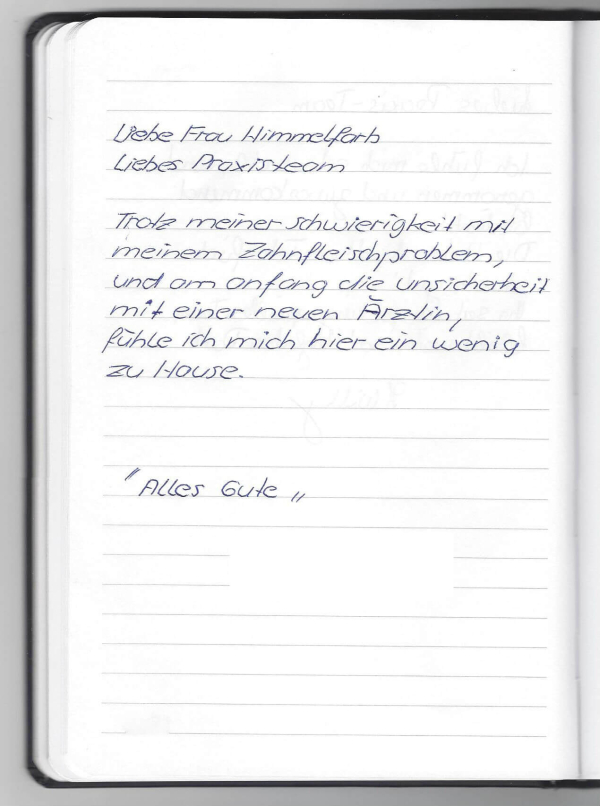 Liebe Frau Himmelfarb
Liebes Praxisteam
Trotz meiner schwierigkeit mit
meinem Zahnfleischproblem,
und am anfang die unsicherheit
mit einer neuen Ärztin,
fühle ich mich hier ein wenig
zu Hause.
"Alles Gute„